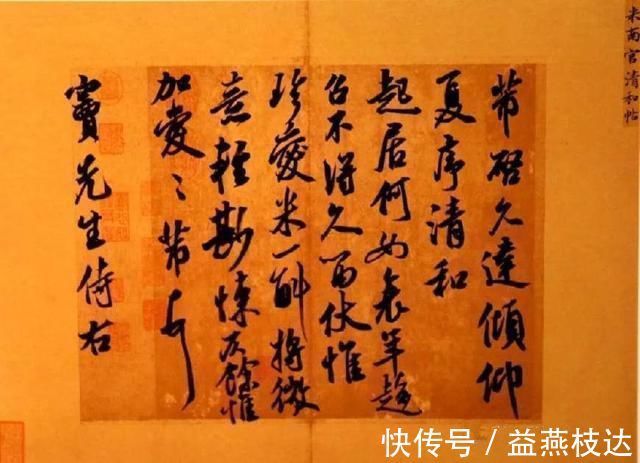 米南宮清和帖
芾啓久違傾仰
夏序清和
起居何如衰年趨
召不得久留伏惟
珍愛米一斛將微
意輕尠悚仄餘惟
加愛〻芾頓首
竇先生侍右
快传号 / 益燕枝达